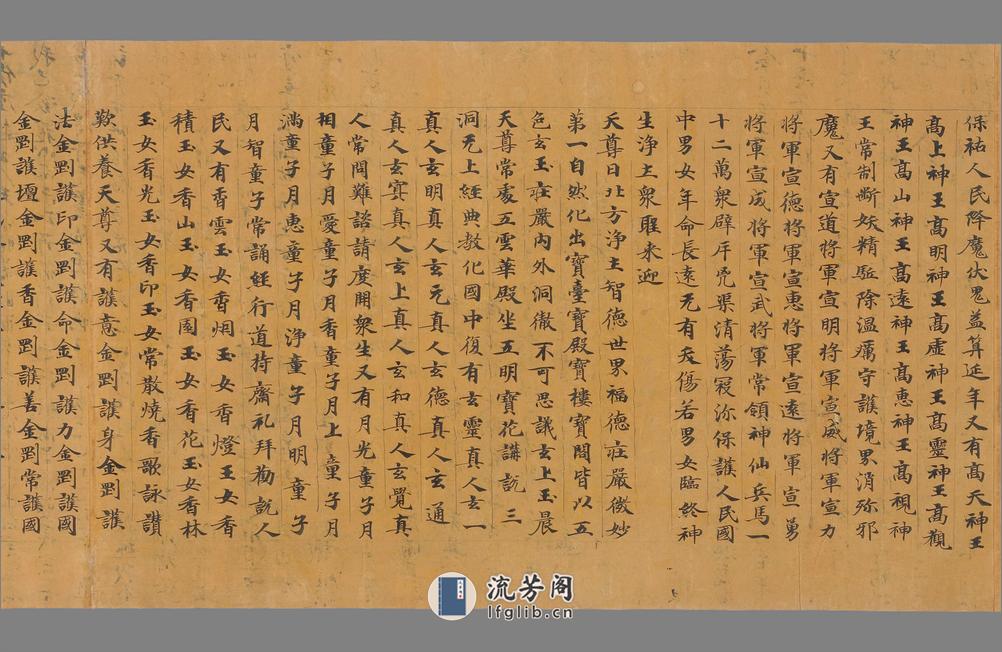 保祐人民降魔伏鬼益筭延年又有高天神王
高上神王高明神王高虛神王高靈神王高觀
神王高山神王高遠神王高惠神王高視神
王常制斷妖精駈除温癘守護境界消弥邪
魔又有宣道將軍宣明將軍宣威將軍宣力
將軍宣德將軍宣惠將軍宣遠將軍宣勇
將軍宣成將軍宣武將軍常領神仙兵馬一
十二萬衆辟斥凶渠清蕩寇弥保護人民國
中男女年命長遠无有夭傷若男女臨終神
生浄土衆聖来迎
天尊曰北方浄土智德世界福德莊嚴微妙
第一自然化出寶臺寶殿寶樓寶閣皆以五
色玄玉莊嚴內外洞徹不可思議玄上玉晨
天尊常處五雲華殿坐五明寶花講說三
洞无上經典教化國中復有玄靈真人玄一
真人玄明真人玄元真人玄德真人玄通
真人玄寂真人玄上真人玄和真人玄覺真
人常問難諮請度開衆生又有月光童子月
相童子月愛童子月香童子月上童子月
滿童子月惠童子月浄童子月明童子
月智童子常誦經行道持齋礼拜勸說人
民又有香雲玉女香烟玉女香燈王女香
積玉女香山玉女香園玉女香花玉女香林
玉女香光玉女香印玉女常散燒香歌詠讃
歎供養天尊又有護意金剛護身金剛護
法金剛護印金剛護命金剛護力金剛護國
金剛護壇金剛護香金剛護善金剛常護國
流芳阁
lfglib.cn